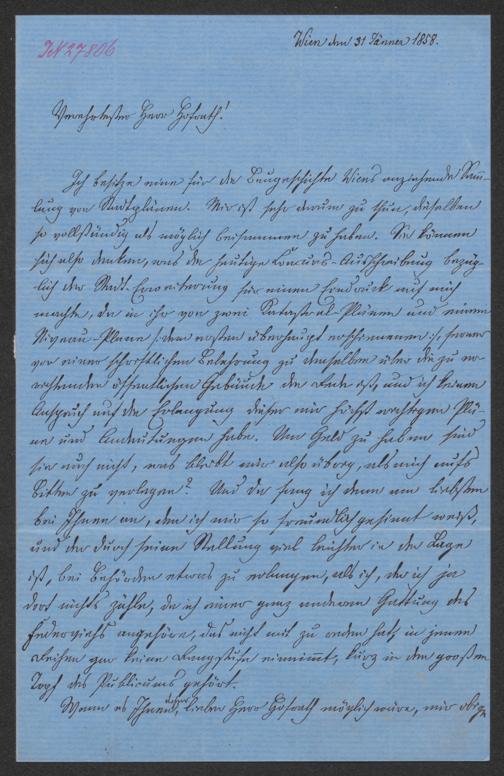 IN 27806
Wien den 31 Jänner 1858.
Verehrtester Herr Hofrath!
Ich besitze eine für die Baugeschichte Wiens anziehende Samm-
lung von Stadtplänen. Mir ist sehr darum zu thun, dieselben
so vollständig als möglich beisammen zu haben. Sie können
sich also denken, was die heutige Concurs-Ausschreibung bezüg-
lich der Stadt-Erweiterung für einen Eindruck auf mich
machte, da in ihr von zwei Katastral-Plänen und einem
Niveau-Plane /: dem ersten überhaupt erschienenen :/, ferner
von einer schriftlichen Belehrung zu demselben über die zu er-
wartenden öffentlichen Gebäude die Rede ist, und ich keinen
Anspruch auf die Erlangung dieser mir höchst wichtigen Plä-
ne und Andeutungen habe. Um Geld zu haben sind
sie auch nicht, was bleibt mir also übrig, als mich aufs
Bitten zu verlegen? Und da fang ich denn am liebsten
bei Ihnen an, den ich mir so freundlich gesinnt weiß,
und der durch seine Stellung viel leichter in der Lage
ist, bei Behörden etwas zu erlangen, als ich, der ich ja
dort nichts zähle, da ich einer ganz anderen Gattung des
Federviehs angehöre, das nicht mit zu reden hat, in jenen
Reihen gar keine Rangstufe einnimmt, kurz in den großen
Topf des Publicums gehört.
Wenn es Ihnen, lieber Herr Hofrath möglich wäre, mir obige